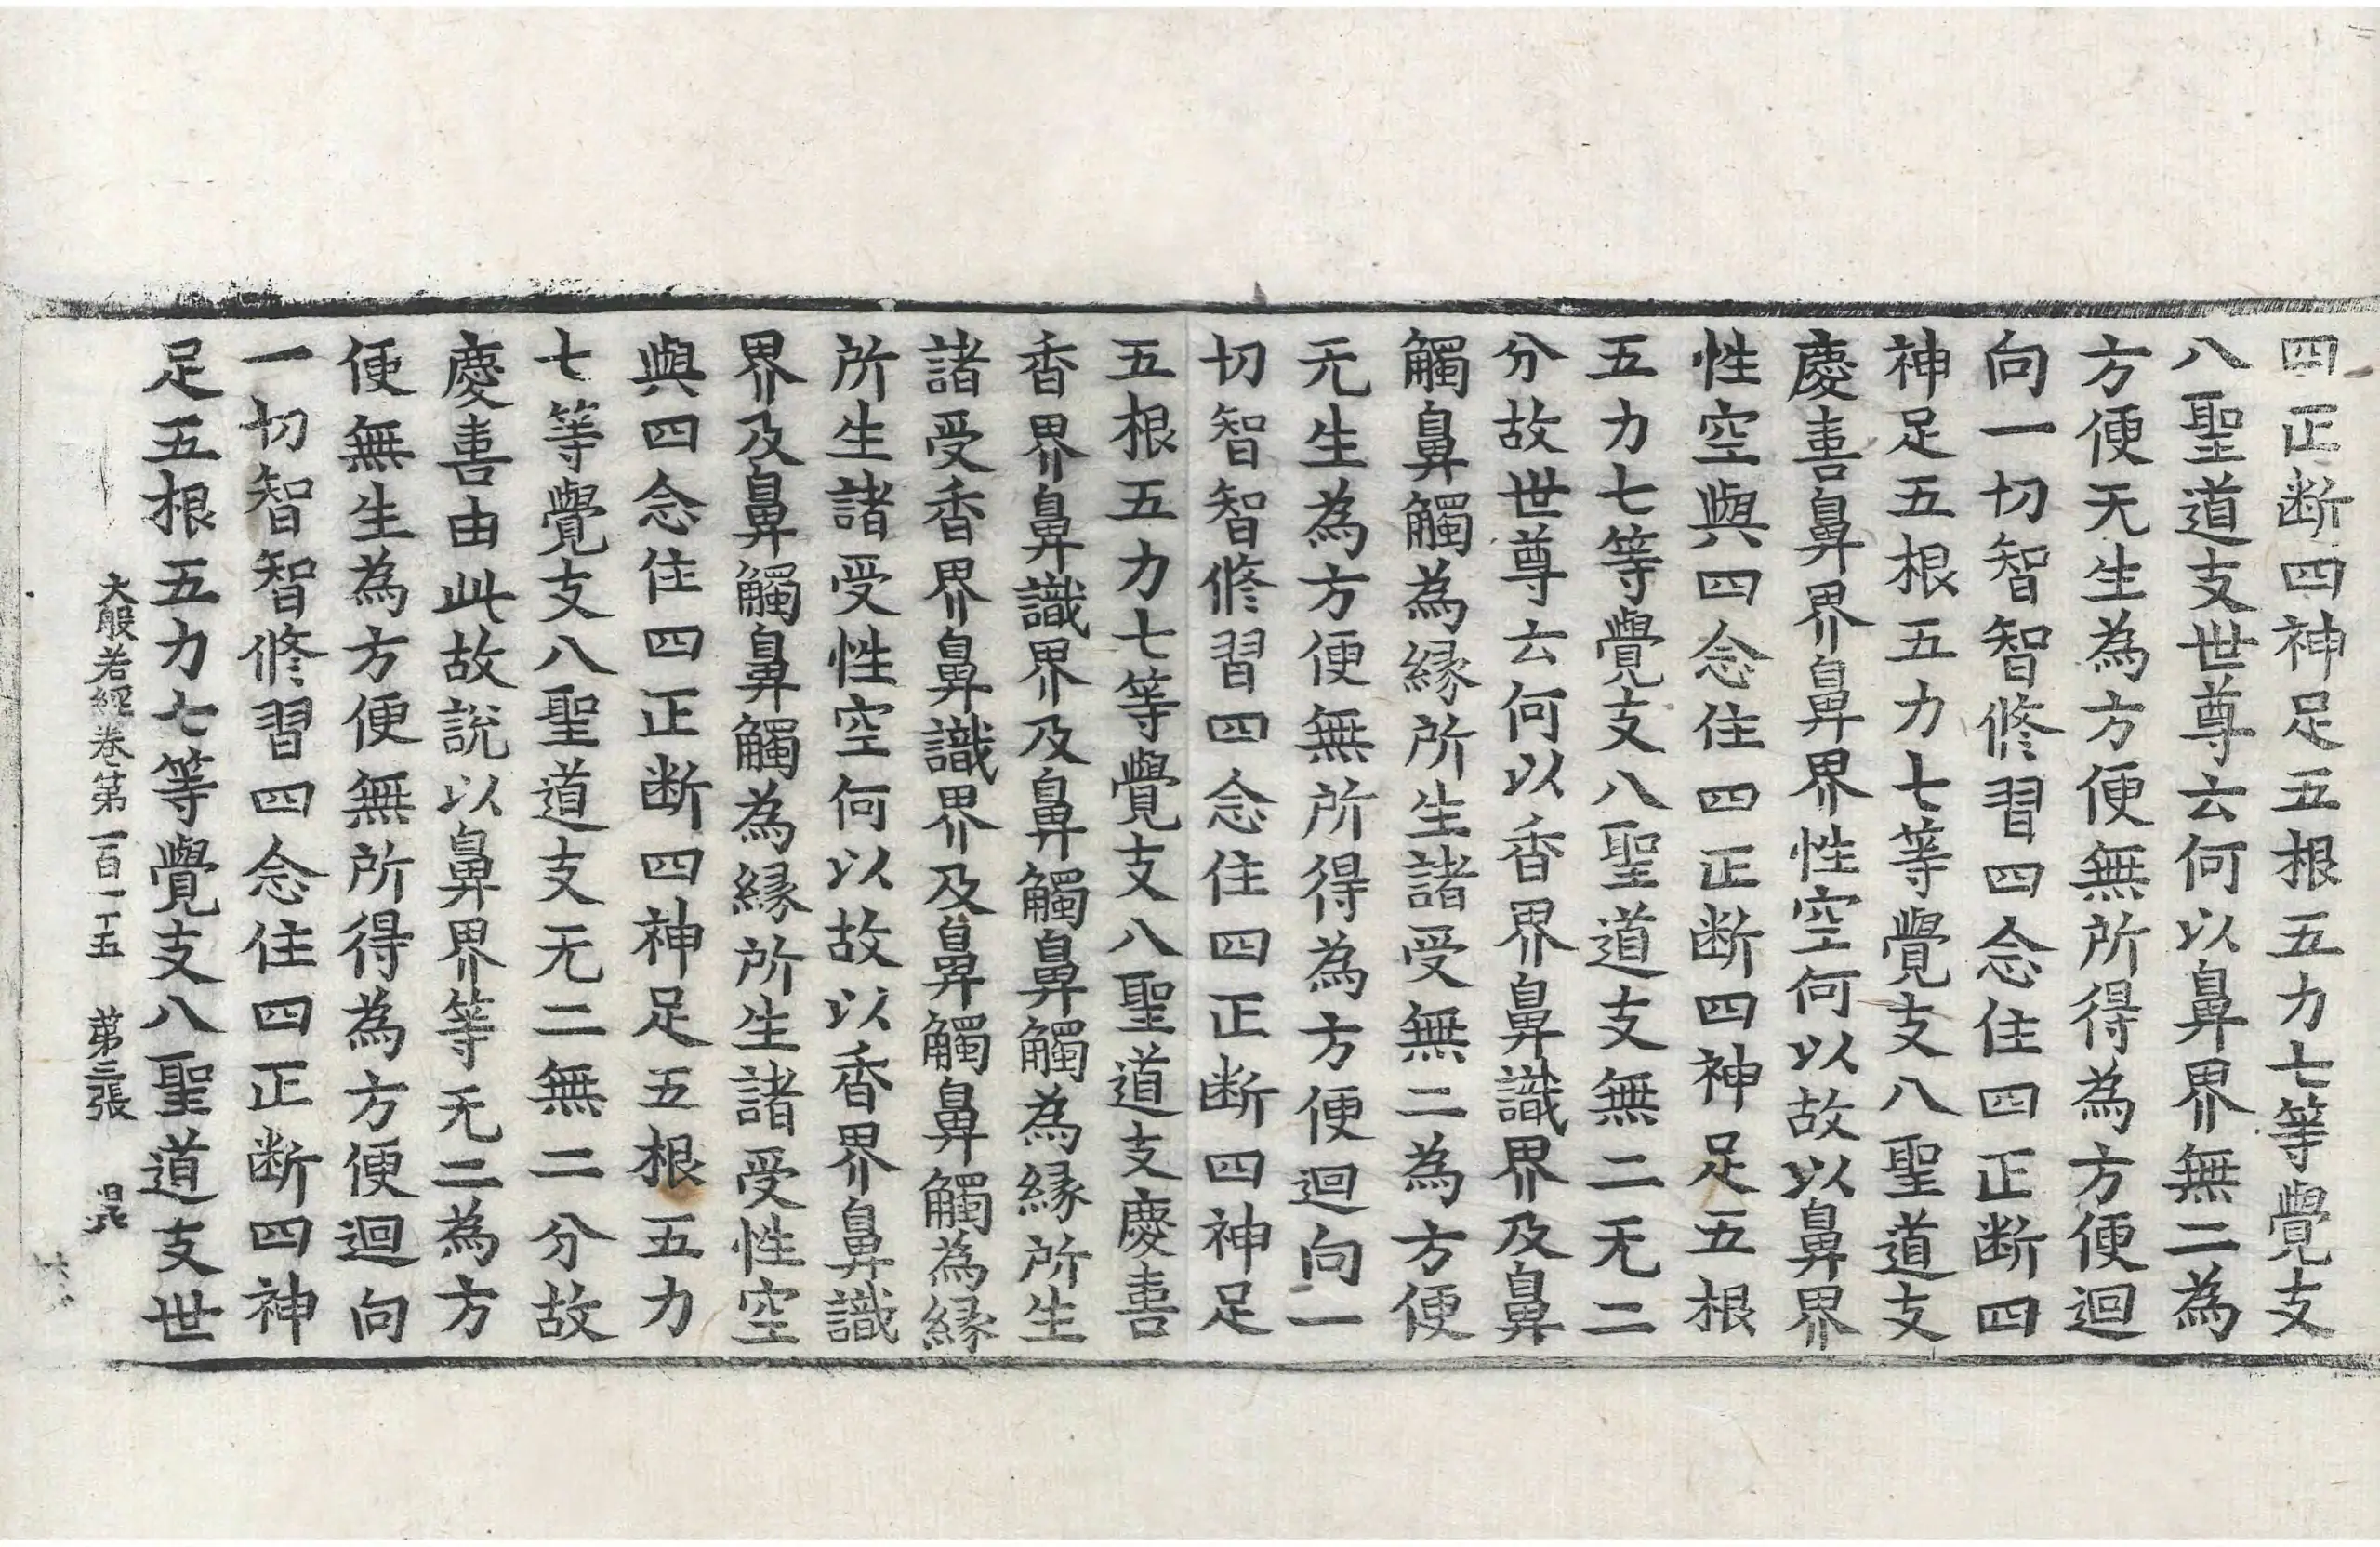 四正断四神足五根五力七等覺支
八聖道支世尊云何以鼻界無二為
方便无生為方便無所得為方便迴
向一切智智修習四念住四正断四
神足五根五力七等覺支八聖道支
慶喜鼻界鼻界性空何以故以鼻界
性空與四念住四正断四神足五根
五力七等覺支八聖道支無二无二
分故世尊云何以香界鼻識界及鼻
觸鼻觸為縁所生諸受無二為方便
无生為方便無所得為方便迴向一
切智智修習四念住四正断四神足
五根五力七等覺支八聖道支慶喜
香界鼻識界及鼻觸鼻觸為縁所生
諸受香界鼻識界及鼻觸鼻觸為縁
所生諸受性空何以故以香界鼻識
界及鼻觸鼻觸為縁所生諸受性空
與四念住四正断四神足五根五力
七等覺支八聖道支无二無二分故
慶喜由此故說以鼻界等无二為方
便無生為方便無所得為方便迴向
一切智智修習四念住四正断四神
足五根五力七等覺支八聖道支世
大般若經卷第一百一十五 第三張